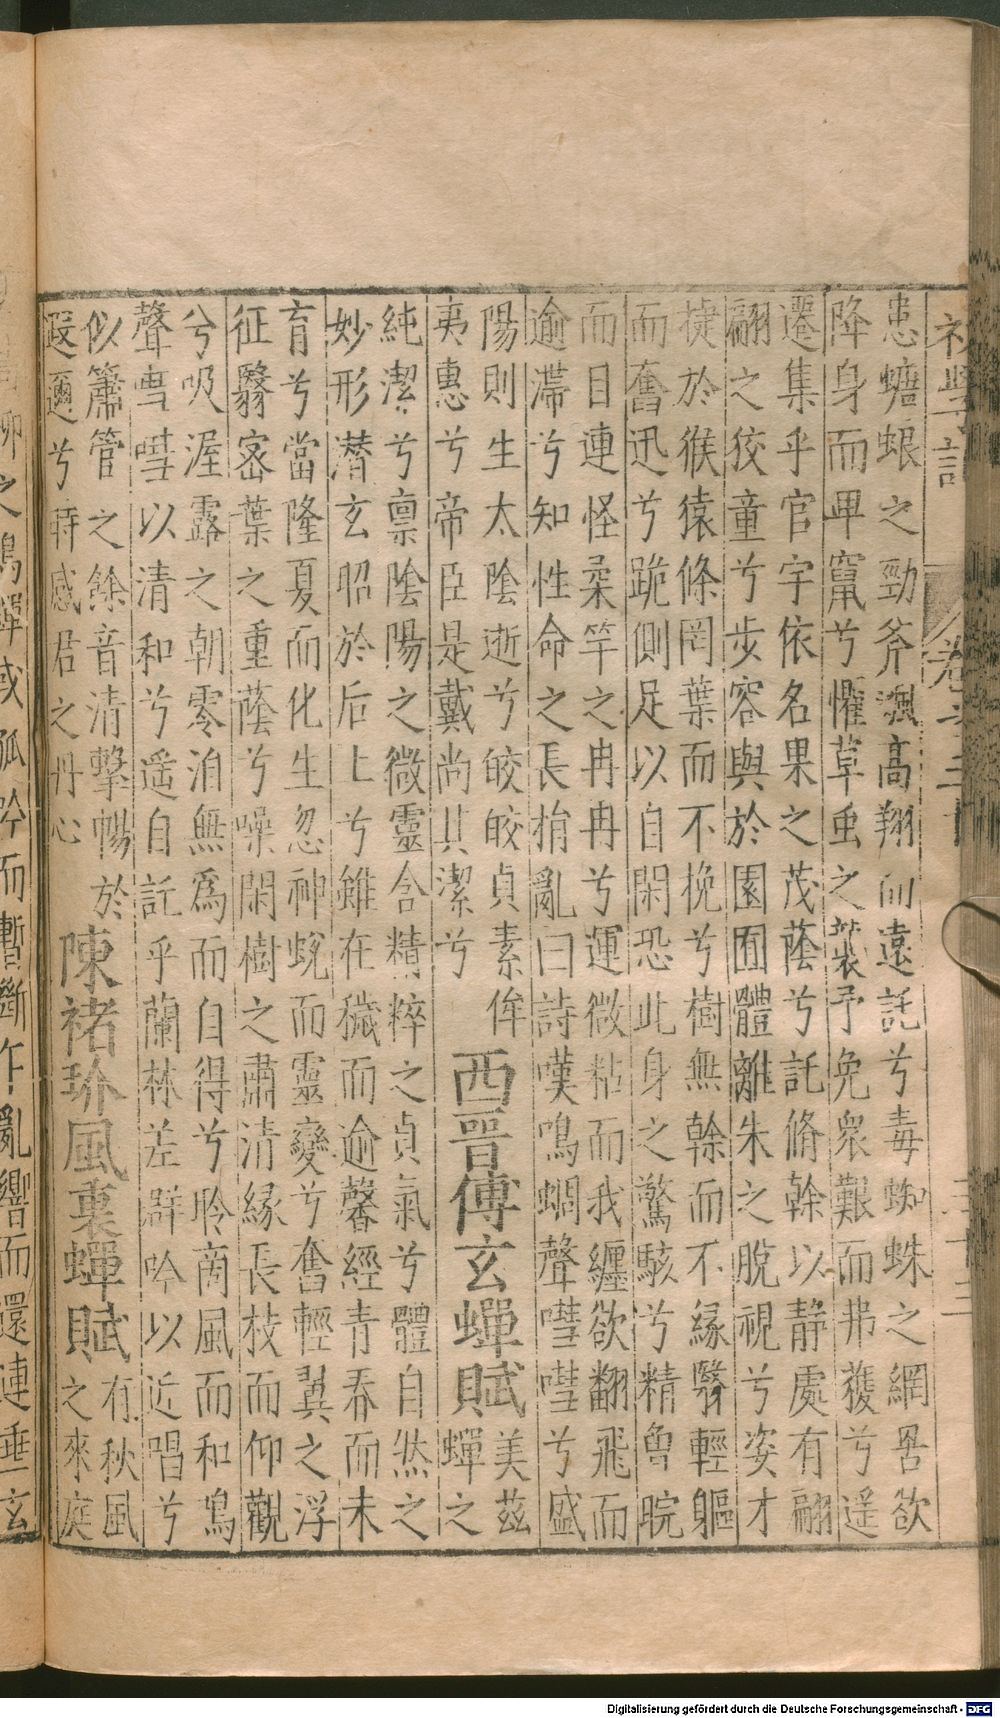 患螗蜋之勁斧飄高翔而遠託兮毒蜘蛛之網罟欲
降身而卑竄兮懼草虫之襲予免衆艱而弗獲兮遥
遷集乎官宇依名果之茂蔭兮託脩幹以静處有翩
翩之狡童兮步容與於園囿體離朱之脫視兮姿才
捷於猴猿條罔葉而不挽兮樹無幹而不緣翳輕軀
而奮迅兮跪側足以自閑恐此身之驚駭兮精曾睆
而目連怪柔竿之冉冉兮運微粘而我纏欲翻飛而
逾滯兮知性命之長捐亂曰詩嘆鳴蜩聲嘒嘒兮盛
陽則生太陰逝兮皎皎貞素侔
夷惠兮帝臣是戴尚其潔兮
西晋傅玄蟬賦
美兹
蟬之
純潔兮禀陰陽之微靈含精粹之貞氣兮體自然之
妙形潜玄昭於后土兮雖在穢而逾馨經青春而未
育兮當隆夏而化生忽神蛻而靈變兮奮輕翼之浮
征翳宻葉之重蔭兮噪閑樹之肅清緣長枝而仰觀
兮吸渥露之朝零泊無爲而自得兮聆南風而和鳴
聲嘒嘒以清和兮遥自託乎蘭林差群吟以近唱兮
似簫管之餘音清擊暢於
遐邇兮時感君之丹心
陳褚玠風裏蟬賦
有秋風
之來庭
Digitalisierung gefördert durch die Deutsche Forschungsgemeinschaft - DFG